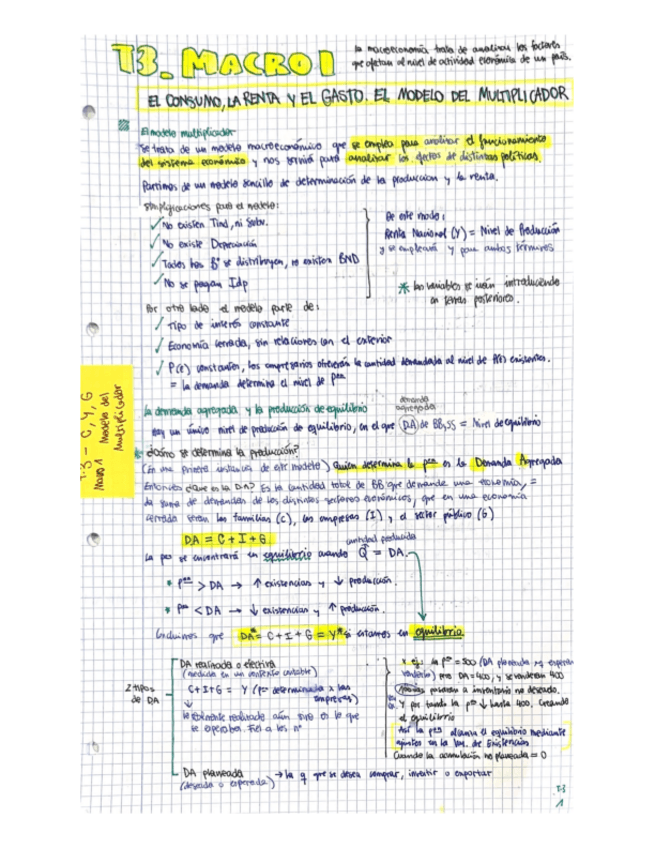 T3. MACRO I
la macroeconomía trata de analizar los factores
que afectan al nivel de actividad económica de un país.
EL CONSUMO, LA RENTA Y EL GASTO. EL MODELO DEL MULTIPLICADOR
El modelo multiplicador
Se trata de un modelo macroeconómico que se emplea para analizar el funcionamiento
del sistema económico y nos servirá para analizar los efectos de distintas políticas.
Partimos de un modelo sencillo de determinación de la produccion y la renta.
Simplificaciones para el modelo:
✓ No existen Tind, ni Subv.
✓ No existe Depreciación
✓ Todos los Bº se distribuyen, no existen BND
✓ No se pagan Idp
De este modo:
Renta Nacional (Y) = Nivel de Producción
y se empleará Y para ambos términos
* las variables se irán introduciendo
en temas posteriores.
Por otro lado el modelo parte de:
✓ Tipo de interés constante
✓ Economía cerrada, sin relaciones con el exterior
✓ P(e) constantes, los empresarios ofrecerán la cantidad demandada al nivel de existentes.
= la demanda determina el nivel de pºn
T.3 - C, Y, G
Macro 1 Modelo del
Multiplicador
La demanda agregada y la producción de equilibrio
demanda
agregada
Hay un único nivel de producción de equilibrio, en el que (DA) de BB,SS = Nivel de equilibrio
¿Cómo se determina la producción?
(En una primera instancia de este modelo) Quien determina la pºn es la Demanda Agregada
Entonces ¿Que es la DA? Es la cantidad total de BB que demande una economía, =
la suma de demandas de los distintos sectores económicos, que en una economía
cerrada serán las familias (C), las empresas (I) y el sector público (G)
DA = C + I + G
cantidad producida
La pºn se encontrará en equilibrio cuando Q = DA.
* Pºn > DA → ↑ existencias y ↓ producción.
* Pºn < DA → ↓ existencias y ↑ producción.
Concluimos que DA* = C + I + G = Y* si estamos en equilibrio.
2 tipos
de DA
DA realizada o efectiva
(medida en un contexto contable)
C+I+G = Y (pºn determinada x las
empresas)
↓
lo realmente realizado aún no es lo que
se esperaba. Fiel a los nº
DA planeada
(deseada o esperada)
→ la q que se desea comprar, invertir o exportar
x ej: la pºn = 500 (DA planeada
venderlo) pero DA=400, y se venderán 400
pasarán a inventario no deseado.
Y por tanto la pºn ↓ hasta 400, creando
el equilibrio
Así la pºn alcanza el equilibrio mediante
ajustes en la Var. de Existencias
Cuando la acumulación no planeada = 0
T.3
1